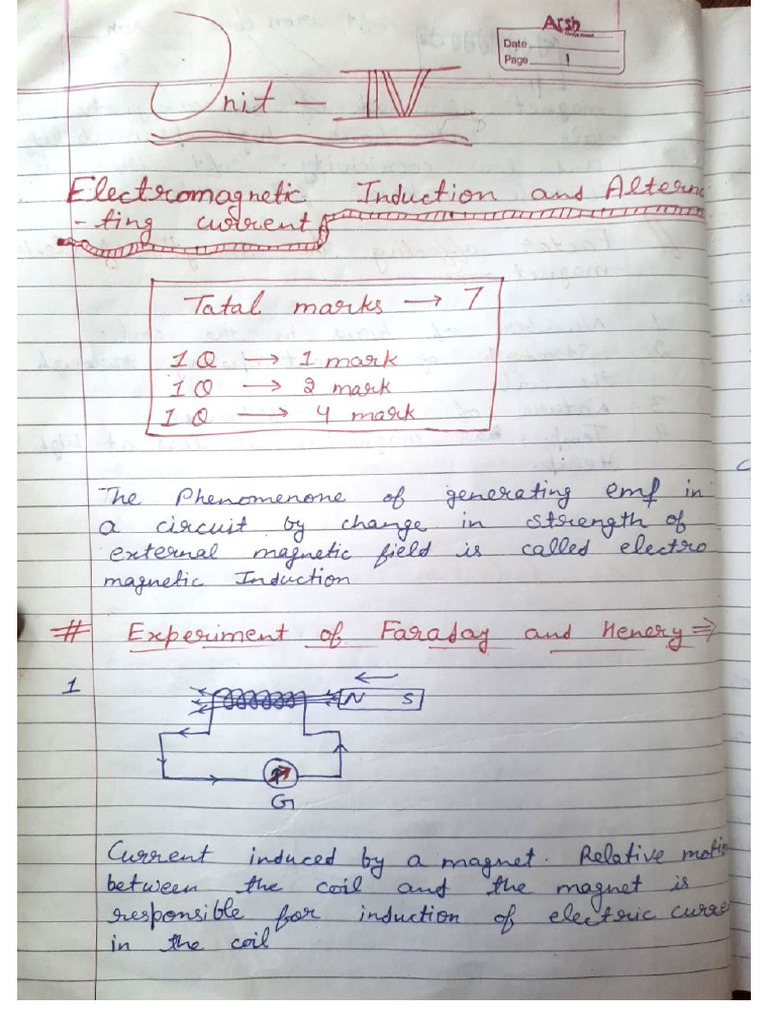 Arsh
Date
Page 1
Unit - IV
Electromagnetic Induction and Alterna
-ting current
Tatal marks → 7
1 Q → 1 mark
1 Q → 2 mark
1 Q → 4 mark
The Phenomenone of generating emf in
a circuit by change in strength of
external magnetic field is called electro
magnetic Induction
# Experiment of Faraday and Henery ⇒
1
N S
G
Current induced by a magnet. Relative motio
between the coil and the magnet is
responsible for induction of electric curre
in the coil